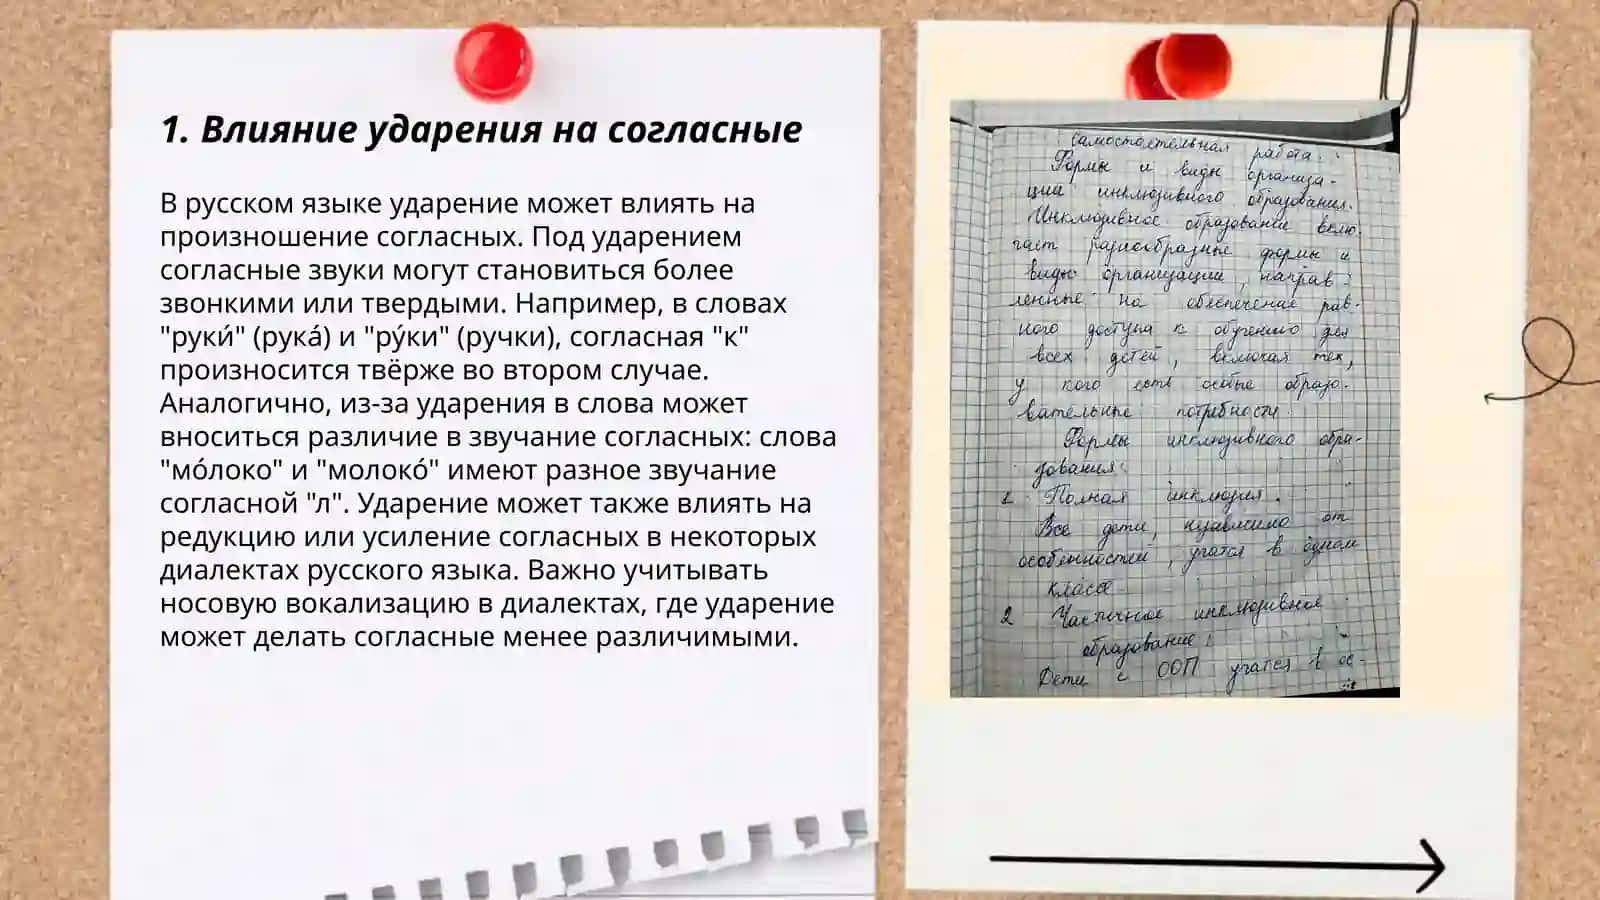 1. Влияние ударения на согласные
В русском языке ударение может влиять на
произношение согласных. Под ударением
согласные звуки могут становиться более
звонкими или твердыми. Например, в словах
"руки́" (рука́) и "ру́ки" (ручки), согласная "к"
произносится твёрже во втором случае.
Аналогично, из-за ударения в слова может
вноситься различие в звучание согласных: слова
"мо́локо" и "молоко́" имеют разное звучание
согласной "л". Ударение может также влиять на
редукцию или усиление согласных в некоторых
диалектах русского языка. Важно учитывать
носовую вокализацию в диалектах, где ударение
может делать согласные менее различимыми.
Самостоятельная работа.
Формы и виды организа-
ции инклюзивного образования.
Инклюзивное образование вклю-
чает разнообразные формы и
виды организации, направ-
ленные на обеспечение рав-
ного доступа к обучению для
всех детей, включая тех,
у кого есть особые образо-
вательные потребности.
Формы инклюзивного обра-
зования:
1. Полная инклюзия.
Все дети, независимо от
особенностей, учатся в одном
классе
2 Частичное инклюзивное
образование:
Дети с ООП учатся в ос-